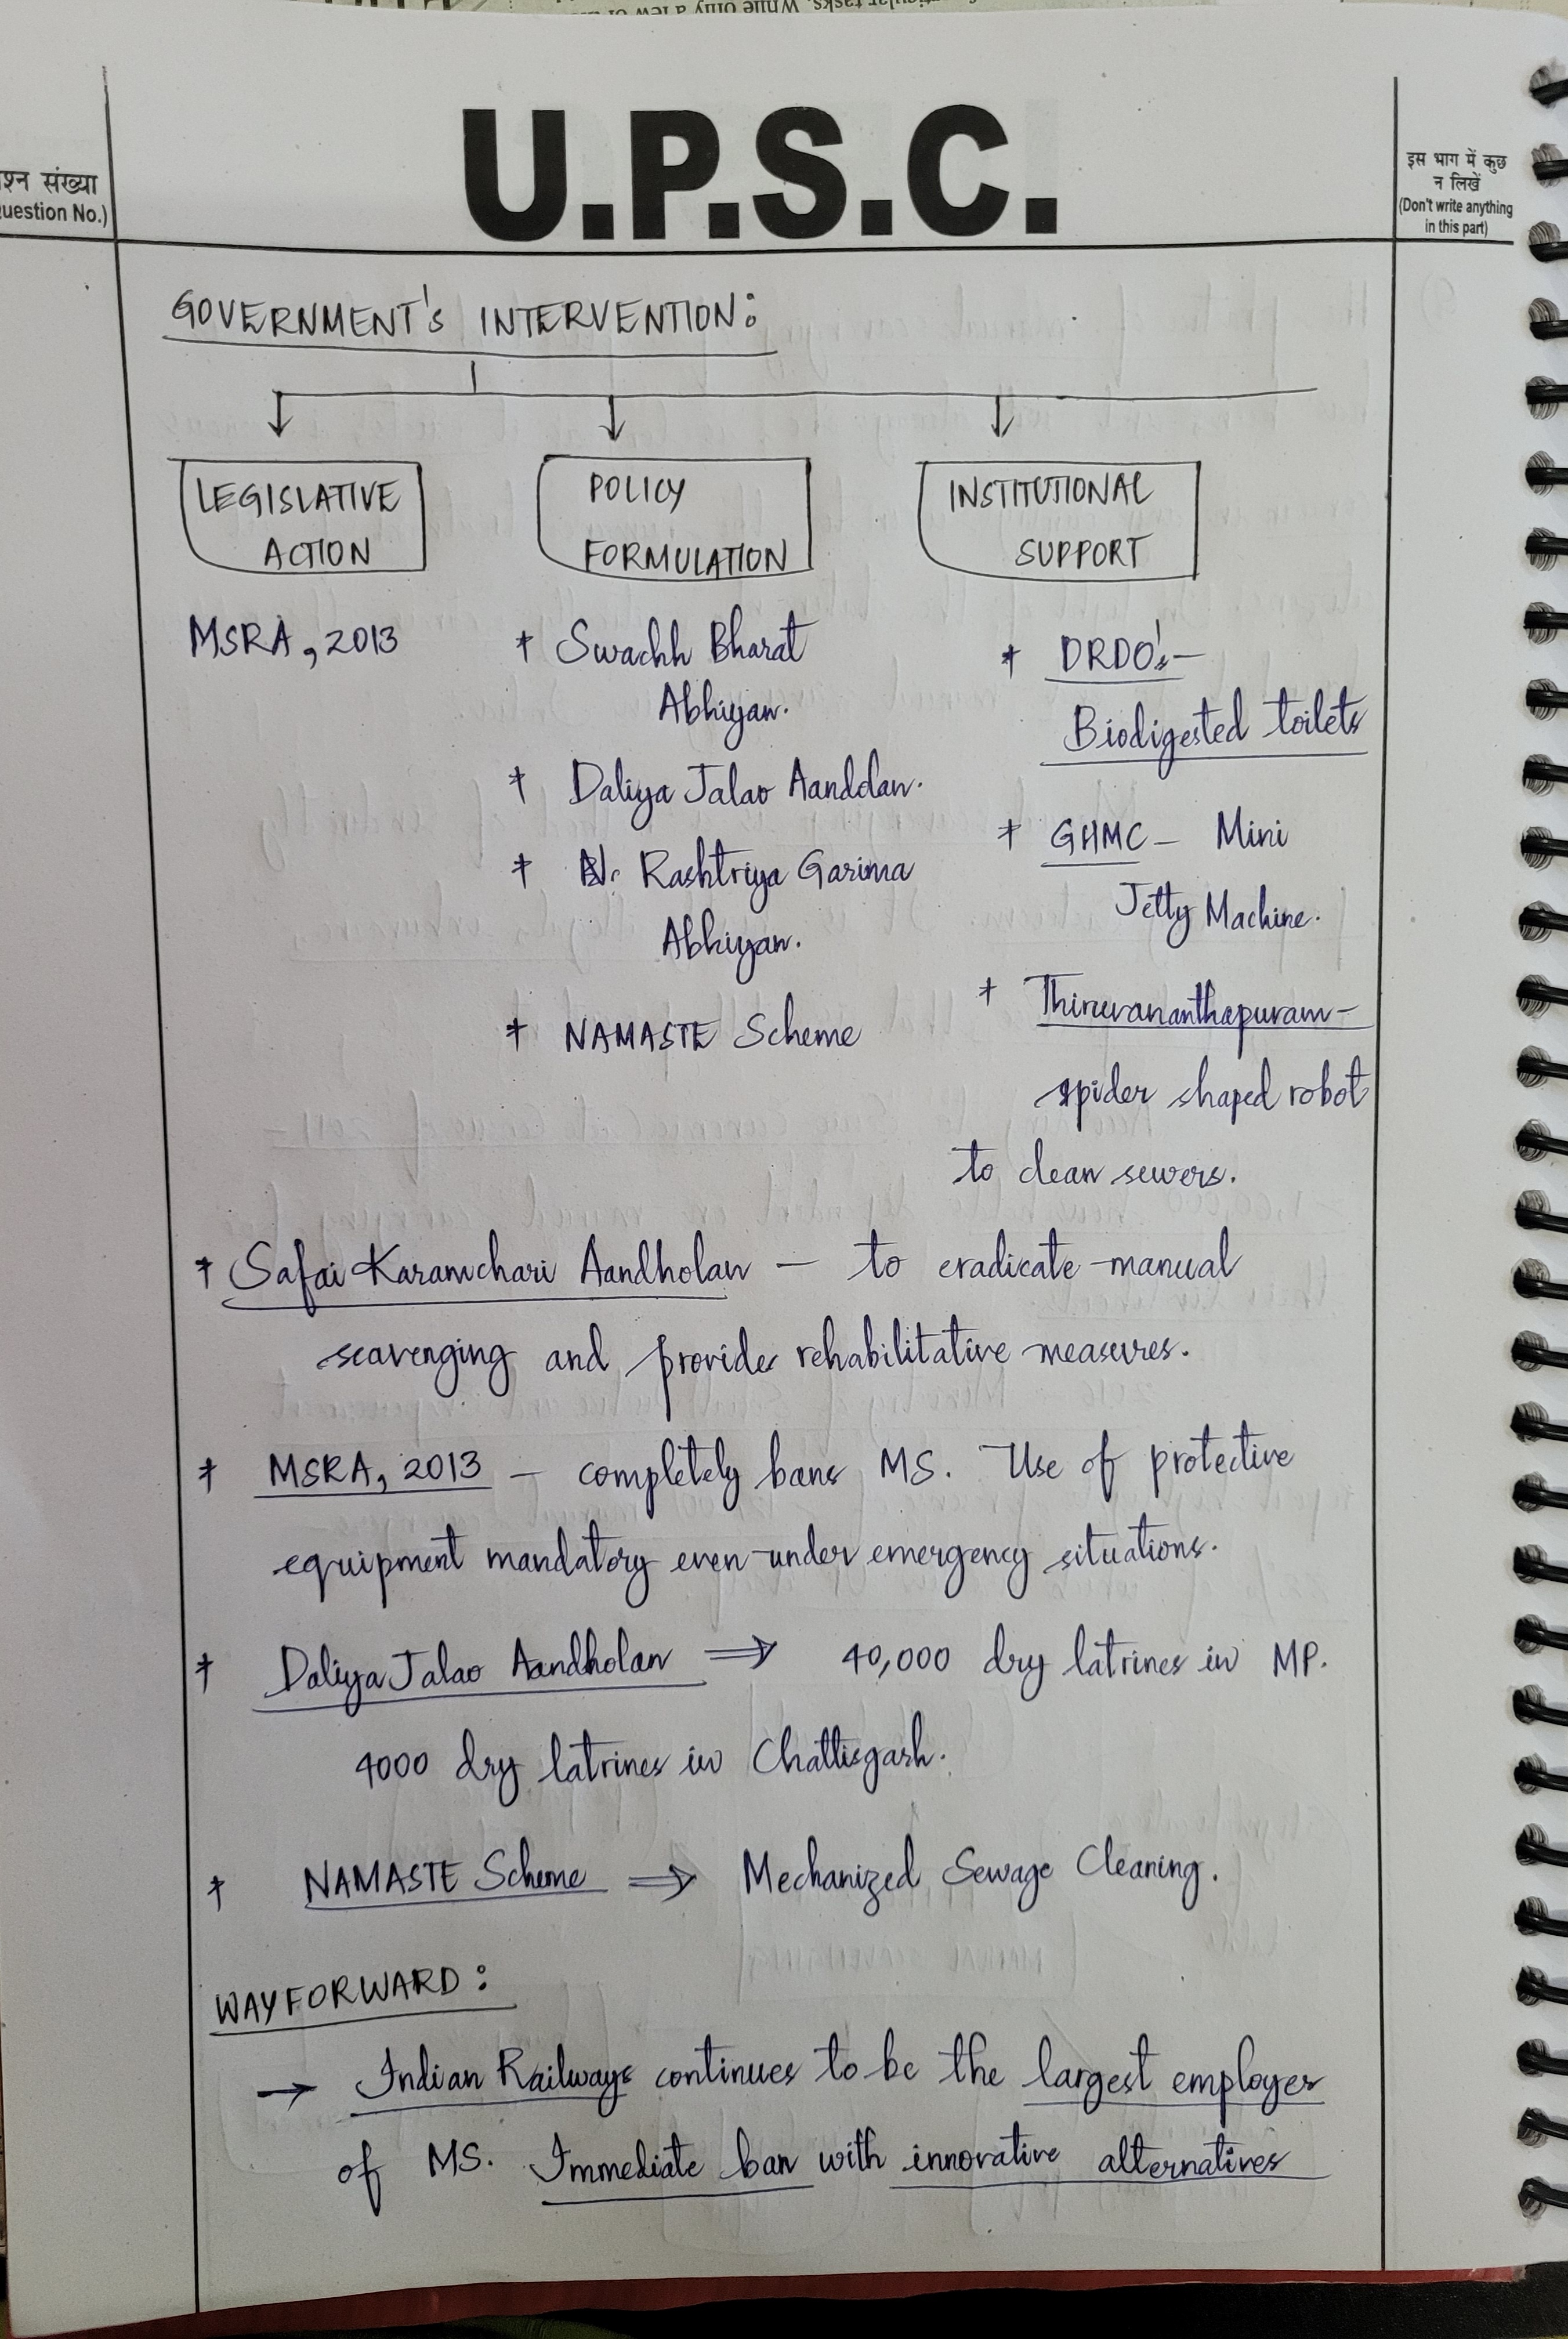 U.P.S.C.
श्न संख्या
uestion No.)
इस भाग में कुछ
न लिखें
(Don't write anything
in this part)
GOVERNMENT's INTERVENTION:
LEGISLATIVE
ACTION
MSRA, 2013
POLICY
FORMULATION
* Swachh Bharat
Abhiyan.
* Daliya Jalao Aanddan.
* N. Rashtriya Garima
Abhiyan.
* NAMASTE Scheme
INSTITUTIONAL
SUPPORT
* DRDO's –
Biodigested toilets
* GHMC – Mini
Jetty Machine.
* Thiruvananthapuram –
spider shaped robot
to clean sewers.
* Safai Karamchari Aandholan – to eradicate manual
scavenging and provide rehabilitative measures.
* MSRA, 2013 – completely bans MS. Use of protective
equipment mandatory even under emergency situations.
* Daliya Jalao Aandholan ⇒ 40,000 dry latrines in MP.
4000 dry latrines in Chattisgarh.
* NAMASTE Scheme ⇒ Mechanized Sewage Cleaning.
WAYFORWARD:
→ Indian Railways continues to be the largest employer
of MS. Immediate ban with innovative alternatives